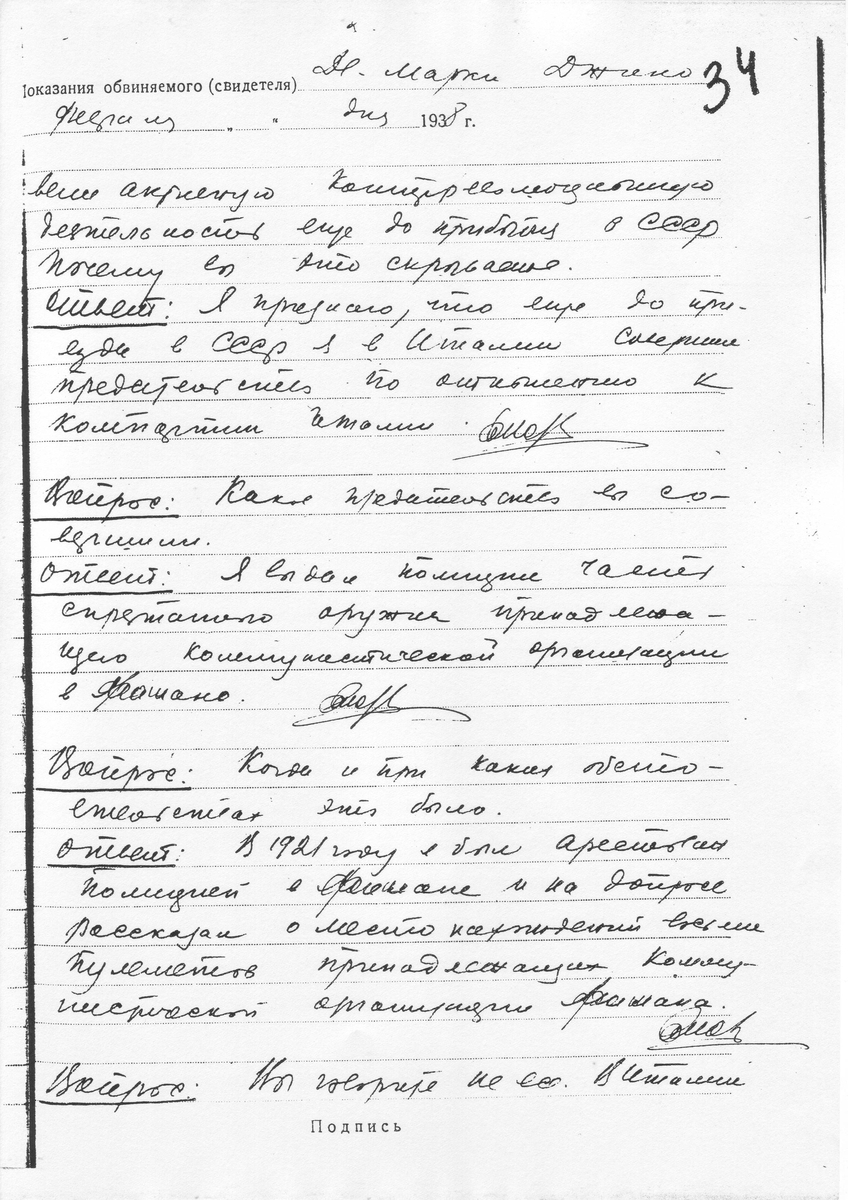 34
Показания обвиняемого (свидетеля) Де Марки Джино
февраля „ “ дня 1938 г.
вели активную контрреволюционную
деятельность еще до прибытия в СССР
Почему вы это скрываете.
Ответ: Я признаю, что еще до при-
езда в СССР я в Италии совершил
предательство по отношению к
компартии Италии.
Вопрос: Какое предательство вы со-
вершили.
Ответ: Я выдал полиции часть
спрятанного оружия принадлежа-
щего коммунистической организации
в
Вопрос: Когда и при каких обсто-
ятельствах это было.
Ответ: В 1921 году я был арестован
полицией в и на допросе
рассказал о место нахождений восьми
пулеметов принадлежащих комму-
нистической организации
Вопрос: Вы говорите не все. В Италии
Подпись